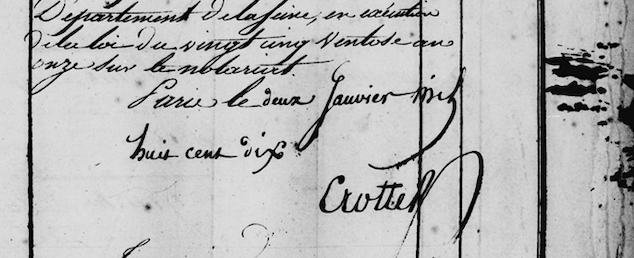 Département de la Seine, en exécution
de la loi du vingt cinq Ventose an
onze sur le notariat.
Paris le deux Janvier mil
huit cent dix
Crottet